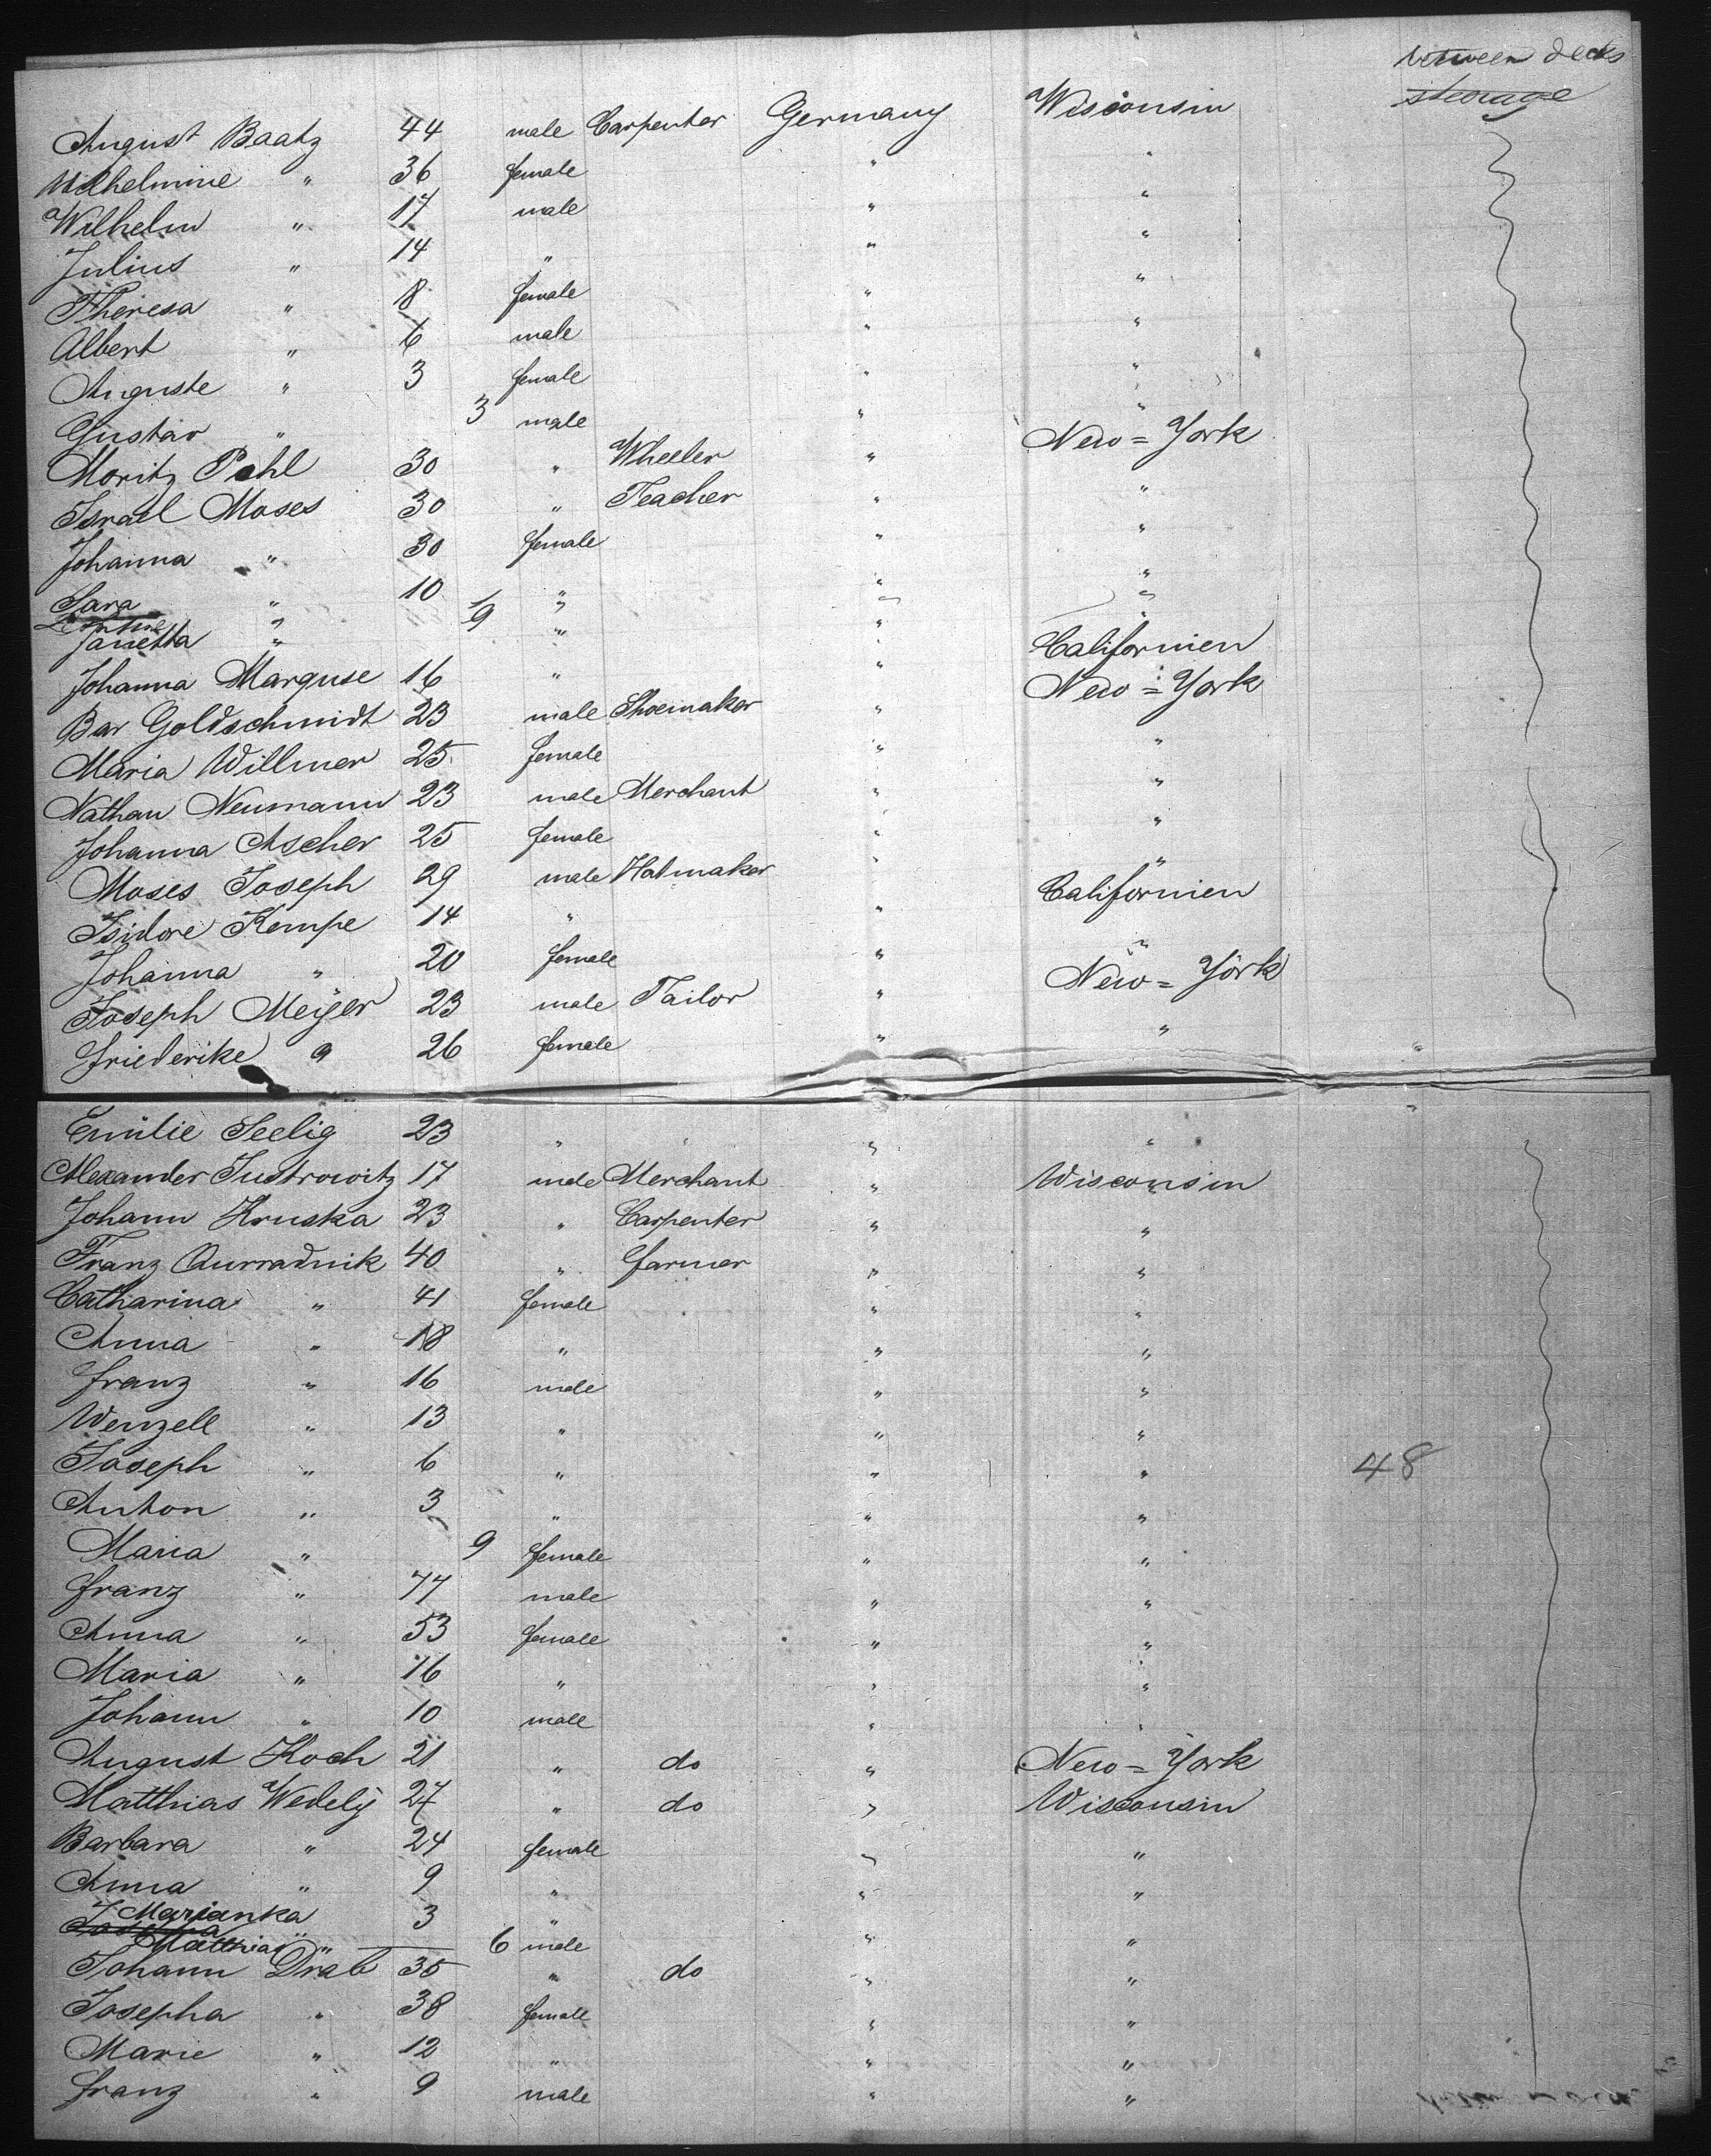 between decks
steerage
August Baatz 44 male Carpenter Germany Wisconsin
Wilhelmine " 36 female " "
Wilhelm " 17 male " "
Julius " 14 " " "
Theresa " 8 female " "
Albert " 6 male " "
Auguste " 3 female " "
Gustav " 3 male " "
Moritz Pehl 30 " Wheeler " New=York
Israel Moses 30 " Teacher " "
Johanna " 30 female " "
Sara " 10 " " "
" 1/9 " " "
Janetta " " " "
Johanna Marguse 16 " " Californien
Bar Goldschmidt 23 male Shoemaker " New=York
Maria Willmer 25 female " "
Nathan Neumann 23 male Merchant " "
Johanna Ascher 25 female " "
Moses Joseph 29 male Hatmaker " "
Isidore Kempe 14 " " Californien
Johanna " 20 female " "
Joseph Meÿer 23 male Tailor " New=York
Friederike " 26 female " "
Emilie Seelig 23 " " "
Alexander Justrowitz 17 male Merchant " Wisconsin
Johann Kruska 23 " Carpenter " "
Franz Ourradnik 40 " farmer " "
Catharina " 41 female " "
Anna " 18 " " "
Franz " 16 male " "
Wenzell " 13 " " "
Joseph " 6 " " " 48
Anton " 3 " " "
Maria " 9 female " "
Franz " 77 male " "
Anna " 53 female " "
Maria " 16 " " "
Johann " 10 male " "
August Koch 21 " do " New=York
Matthias Wedelÿ 27 " do " Wisconsin
Barbara " 24 female " "
Anna " 9 " " "
Marianka 3 "
Matthias " 6 male " "
Johann Drab 35 " do " "
Josepha " 38 female " "
Marie " 12 " " "
Franz " 9 male " "